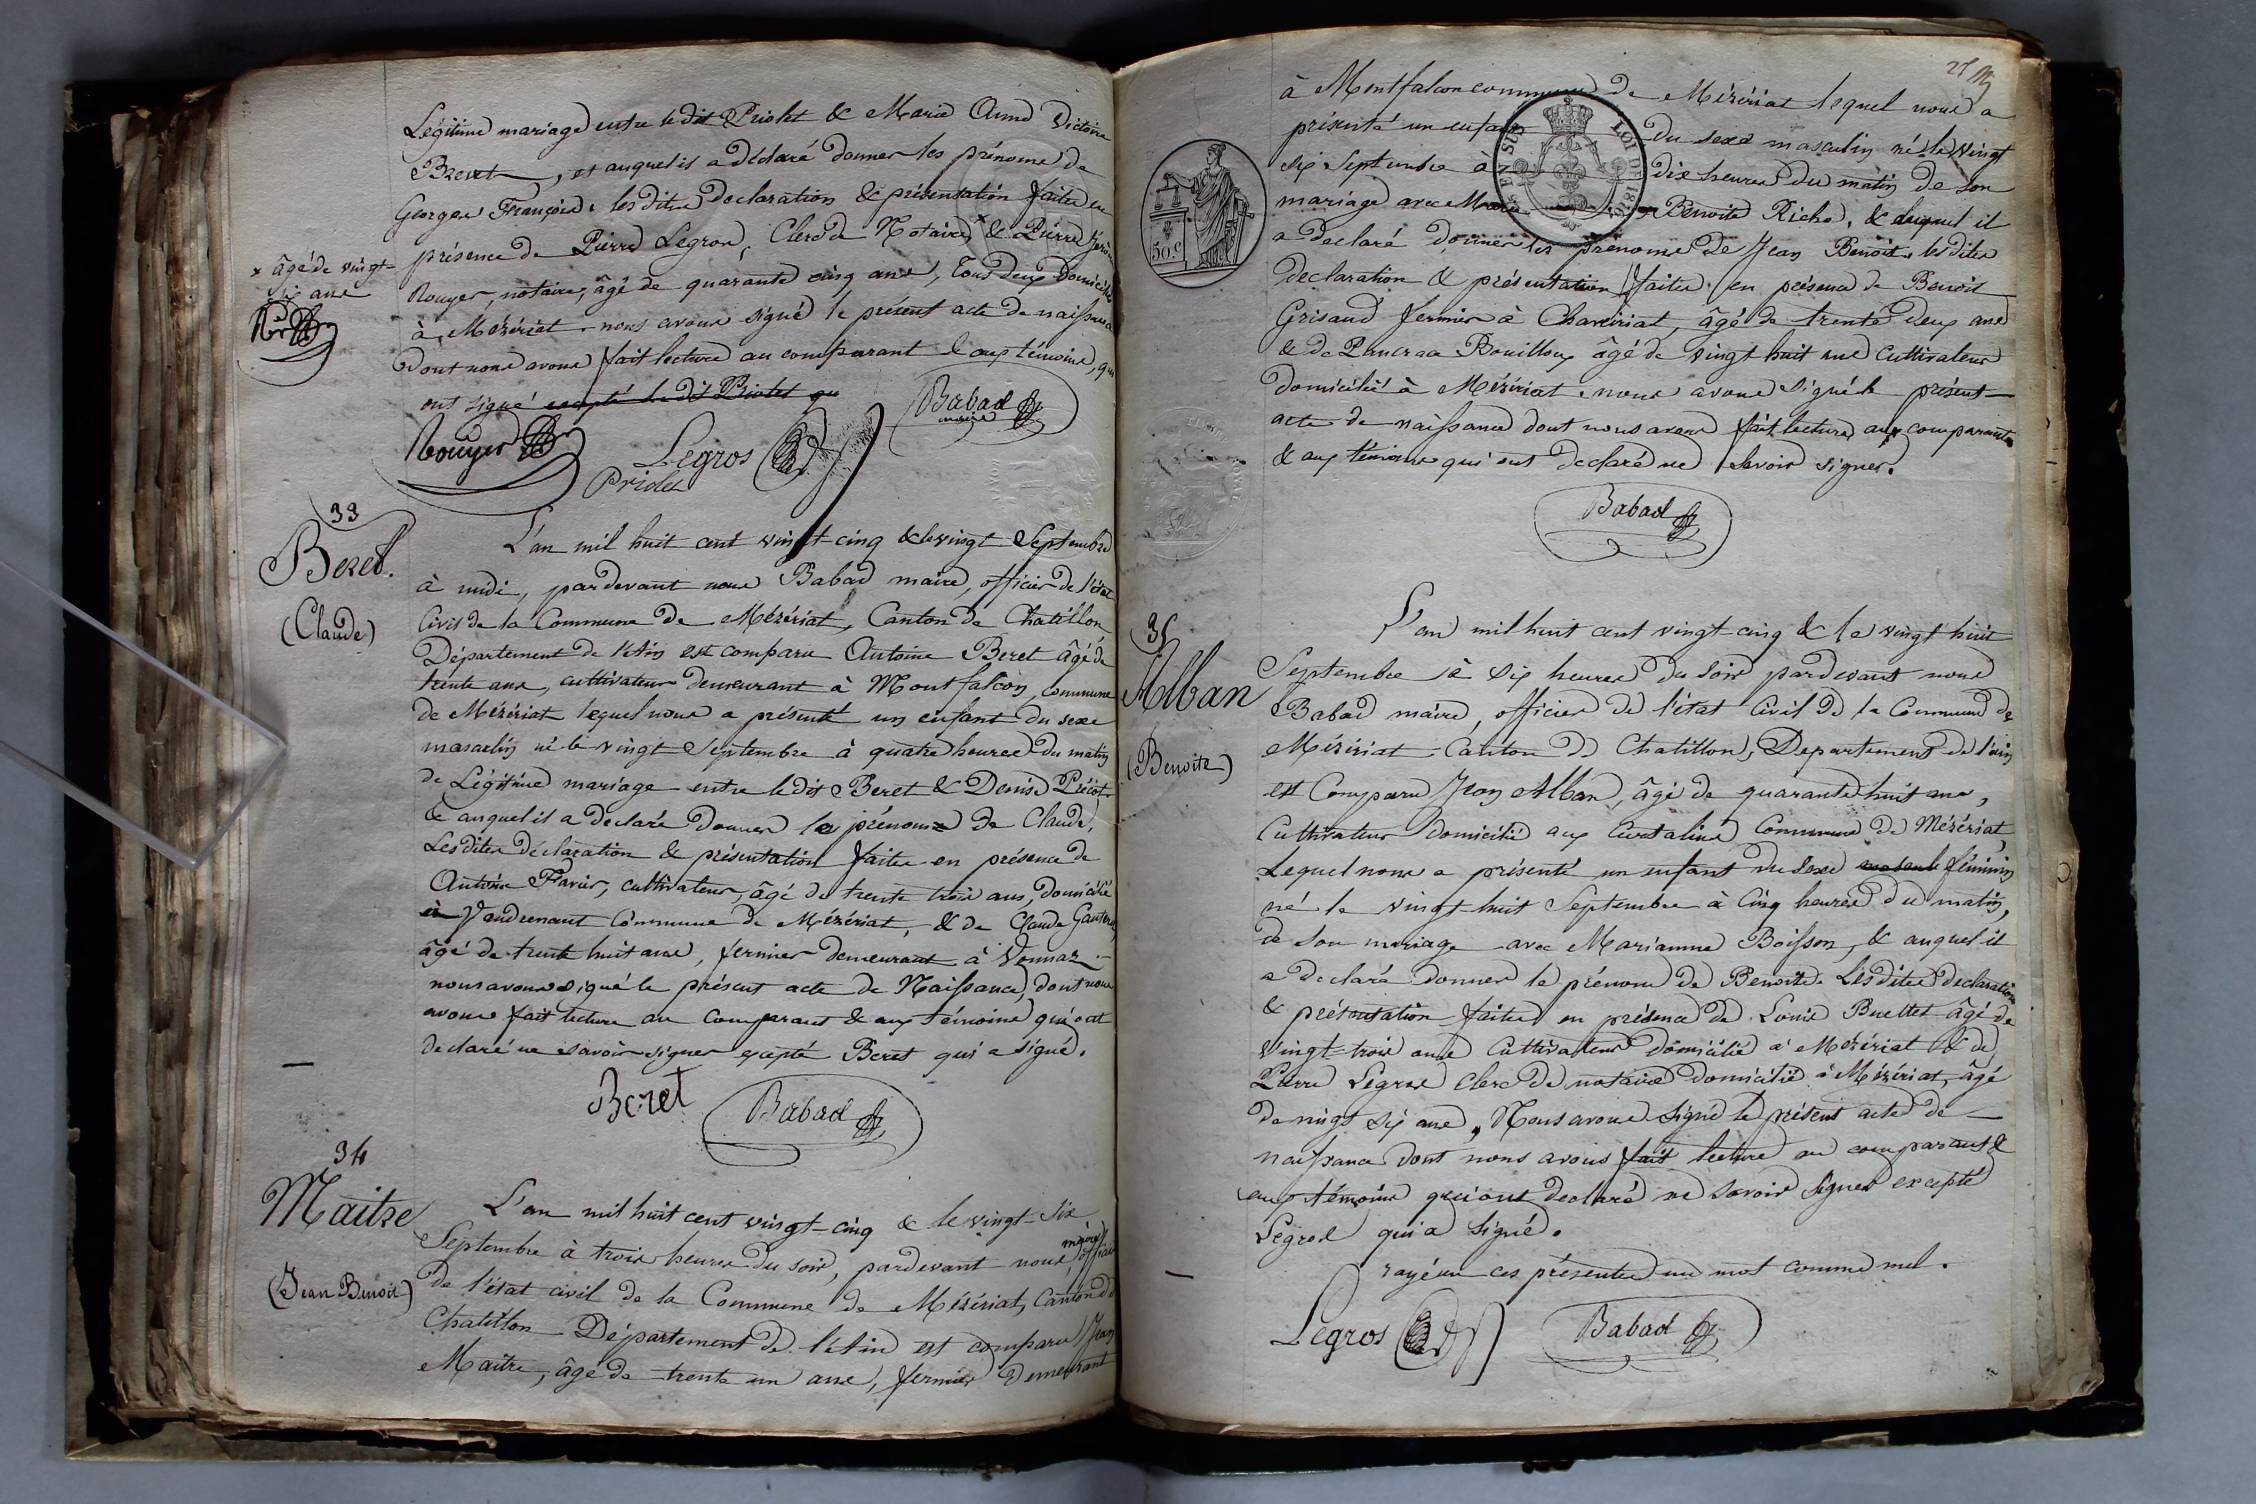 Légitime mariage entre le dit Priolet & Marie Anne Victoire
Brevet, et auquel il a déclaré donner les prénoms de
Georges François. les dites declaration & présentation faites en
présence de Pierre Legros, Clerc de Notaire × & Pierre
Rouyer, notaire, âgé de quarante cinq ans, tous deux domiciliés
à Mézériat. nous avons signé le présent acte de naissance
dont nous avons fait lecture au comparant & aux témoins, qui
ont signé excepté le dit Priolet qu
× âgé de vingt-
six ans
Rouyer
Legros
Babad
maire
Priolet
33
Beret.
(Claude)
L'an mil huit cent vingt-cinq & le vingt Septembre
à midi, pardevant nous Babad maire, officier de l'état
Civil de la Commune de Mézériat, Canton de Chatillon
Département de l'Ain est comparu Antoine Beret âgé de
trente ans, cultivateur demeurant à Montfalcon, Commune
de Mézériat lequel nous a présenté un enfant du sexe
masculin né le vingt Septembre à quatre heures du matin
de Légitime mariage entre le dit Beret & Denise
& auquel il a déclaré donner le prénom de Claude,
Lesdites déclaration & présentation faites en présence de
Antoine Favier, cultivateur, âgé de trente trois ans, domicilié
à Vendenant Commune de Mézériat, & de Claude
âgé de trente huit ans, fermier demeurant à Vonnaz.
nous avons signé le présent acte de Naissance, dont nous
avons fait lecture au comparant & aux témoins qui ont
declaré ne savoir signer excepté Beret qui a signé.
Beret
Babad
34
Maitre
(Jean Benoit)
L'an mil huit cent vingt-cinq & le vingt-six
Septembre à trois heures du soir, pardevant nous, maire officier
de l'état civil de la Commune de Mézériat, Canton de
Chatillon Département de l'Ain est comparu Jean
Maitre, âgé de trente un ans, fermier demeurant
à Montfalcon commune de Mézériat lequel nous a
présenté un enfant du sexe masculin né le vingt
six Septembre à dix heures du matin de son
mariage avec Marie Benoite Riche, & duquel il
a declaré donner les prénoms de Jean Benoit. les dites
declaration & présentation faites en présence de Benoit
Grisaud fermier à Chaveiriat, âgé de trente deux ans
& de Pancrace Bouilloux âgé de vingt huit ans Cultivateur
domicilié à Mézériat. nous avons signé le présent
acte de naissance dont nous avons fait lecture aux comparants
& aux témoins qui ont declaré ne Savoir signer.
EN SUS
LOI DE 1816
50.c
Babad
35
Alban
(Benoite)
L'an mil huit cent vingt-cinq & le vingt huit
Septembre à six heures du soir pardevant nous
Babad maire, officier de l'état Civil de la Commune de
Mézériat Canton de Chatillon, Departement de l'ain
est Comparu Jean Alban, âgé de quarante huit ans,
Cultivateur domicilié aux Commune de Mézériat,
Lequel nous a présenté un enfant du Sexe féminin
né le vingt-huit Septembre à Cinq heures du matin,
de son mariage avec Marianne Boisson, & auquel il
a declaré donner le prénom de Benoite. Lesdites declaration
& présentation faites en présence de Louis Buellet âgé de
vingt-trois ans Cultivateur domicilié à Mézériat & de
Pierre Legros clerc de notaire domicilié à Mézériat, âgé
de vingt six ans. Nous avons signé le présent acte de
naissance dont nous avons fait lecture au comparant &
aux témoins qui ont declaré ne savoir signer excepté
Legros qui a signé.
rayé en ces présentes un mot comme nul.
Legros
Babad